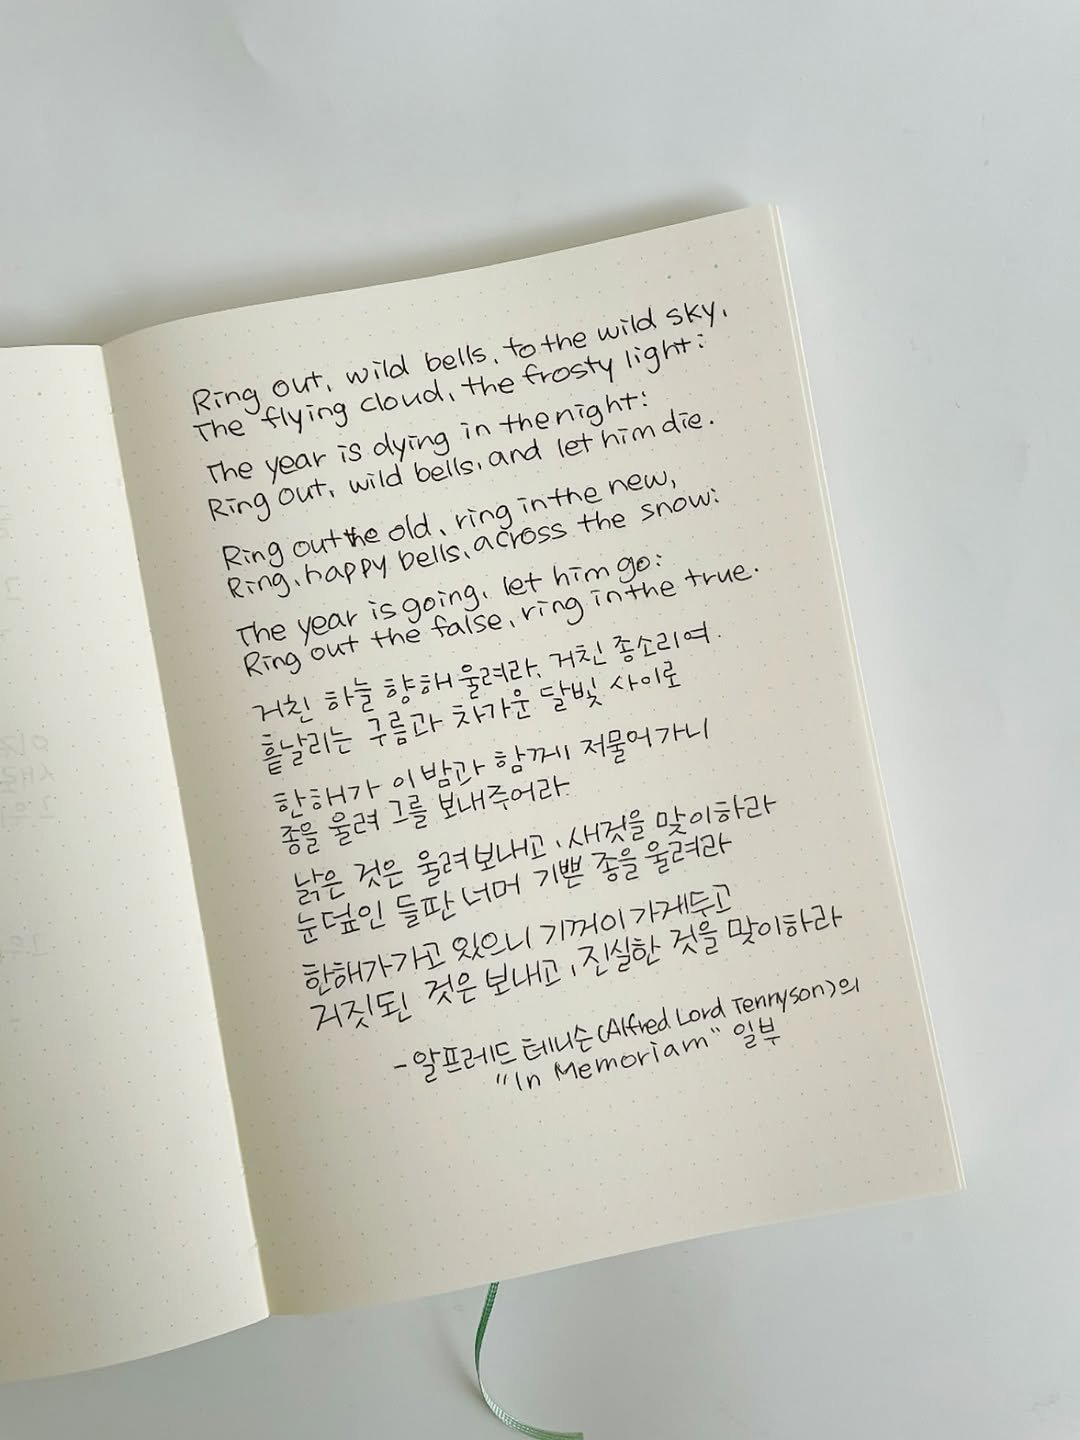 Ring out, wild bells, to the wild sky,
The flying cloud, the frosty light:
The year is dying in the night:
Ring out, wild bells, and let him die.
Ring out the old, ring in the new,
Ring, happy bells, across the snow:
The year is going, let him go:
Ring out the false, ring in the true.
거친 하늘 향해 울려라, 거친 종소리여.
흩날리는 구름과 차가운 달빛 사이로
한해가 이 밤과 함께 저물어가니
종을 울려 그를 보내주어라.
낡은 것은 울려보내고, 새것을 맞이하라
눈덮인 들판 너머 기쁜 종을 울려라
한해가가고 있으니 기꺼이 가게두고
거짓된 것은 보내고, 진실한 것을 맞이하라
-알프레드 테니슨(Alfred Lord Tennyson)의
"In Memoriam" 일부